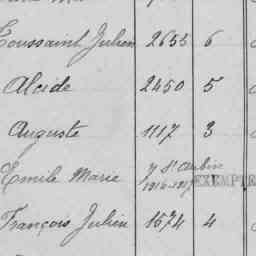 Toussaint Julien 2655 6
Alcide 2450 5
Auguste 1117 3
y St Aubin
Emile Marie 1916-1917 EXEMPTE
François Julien 1674 4